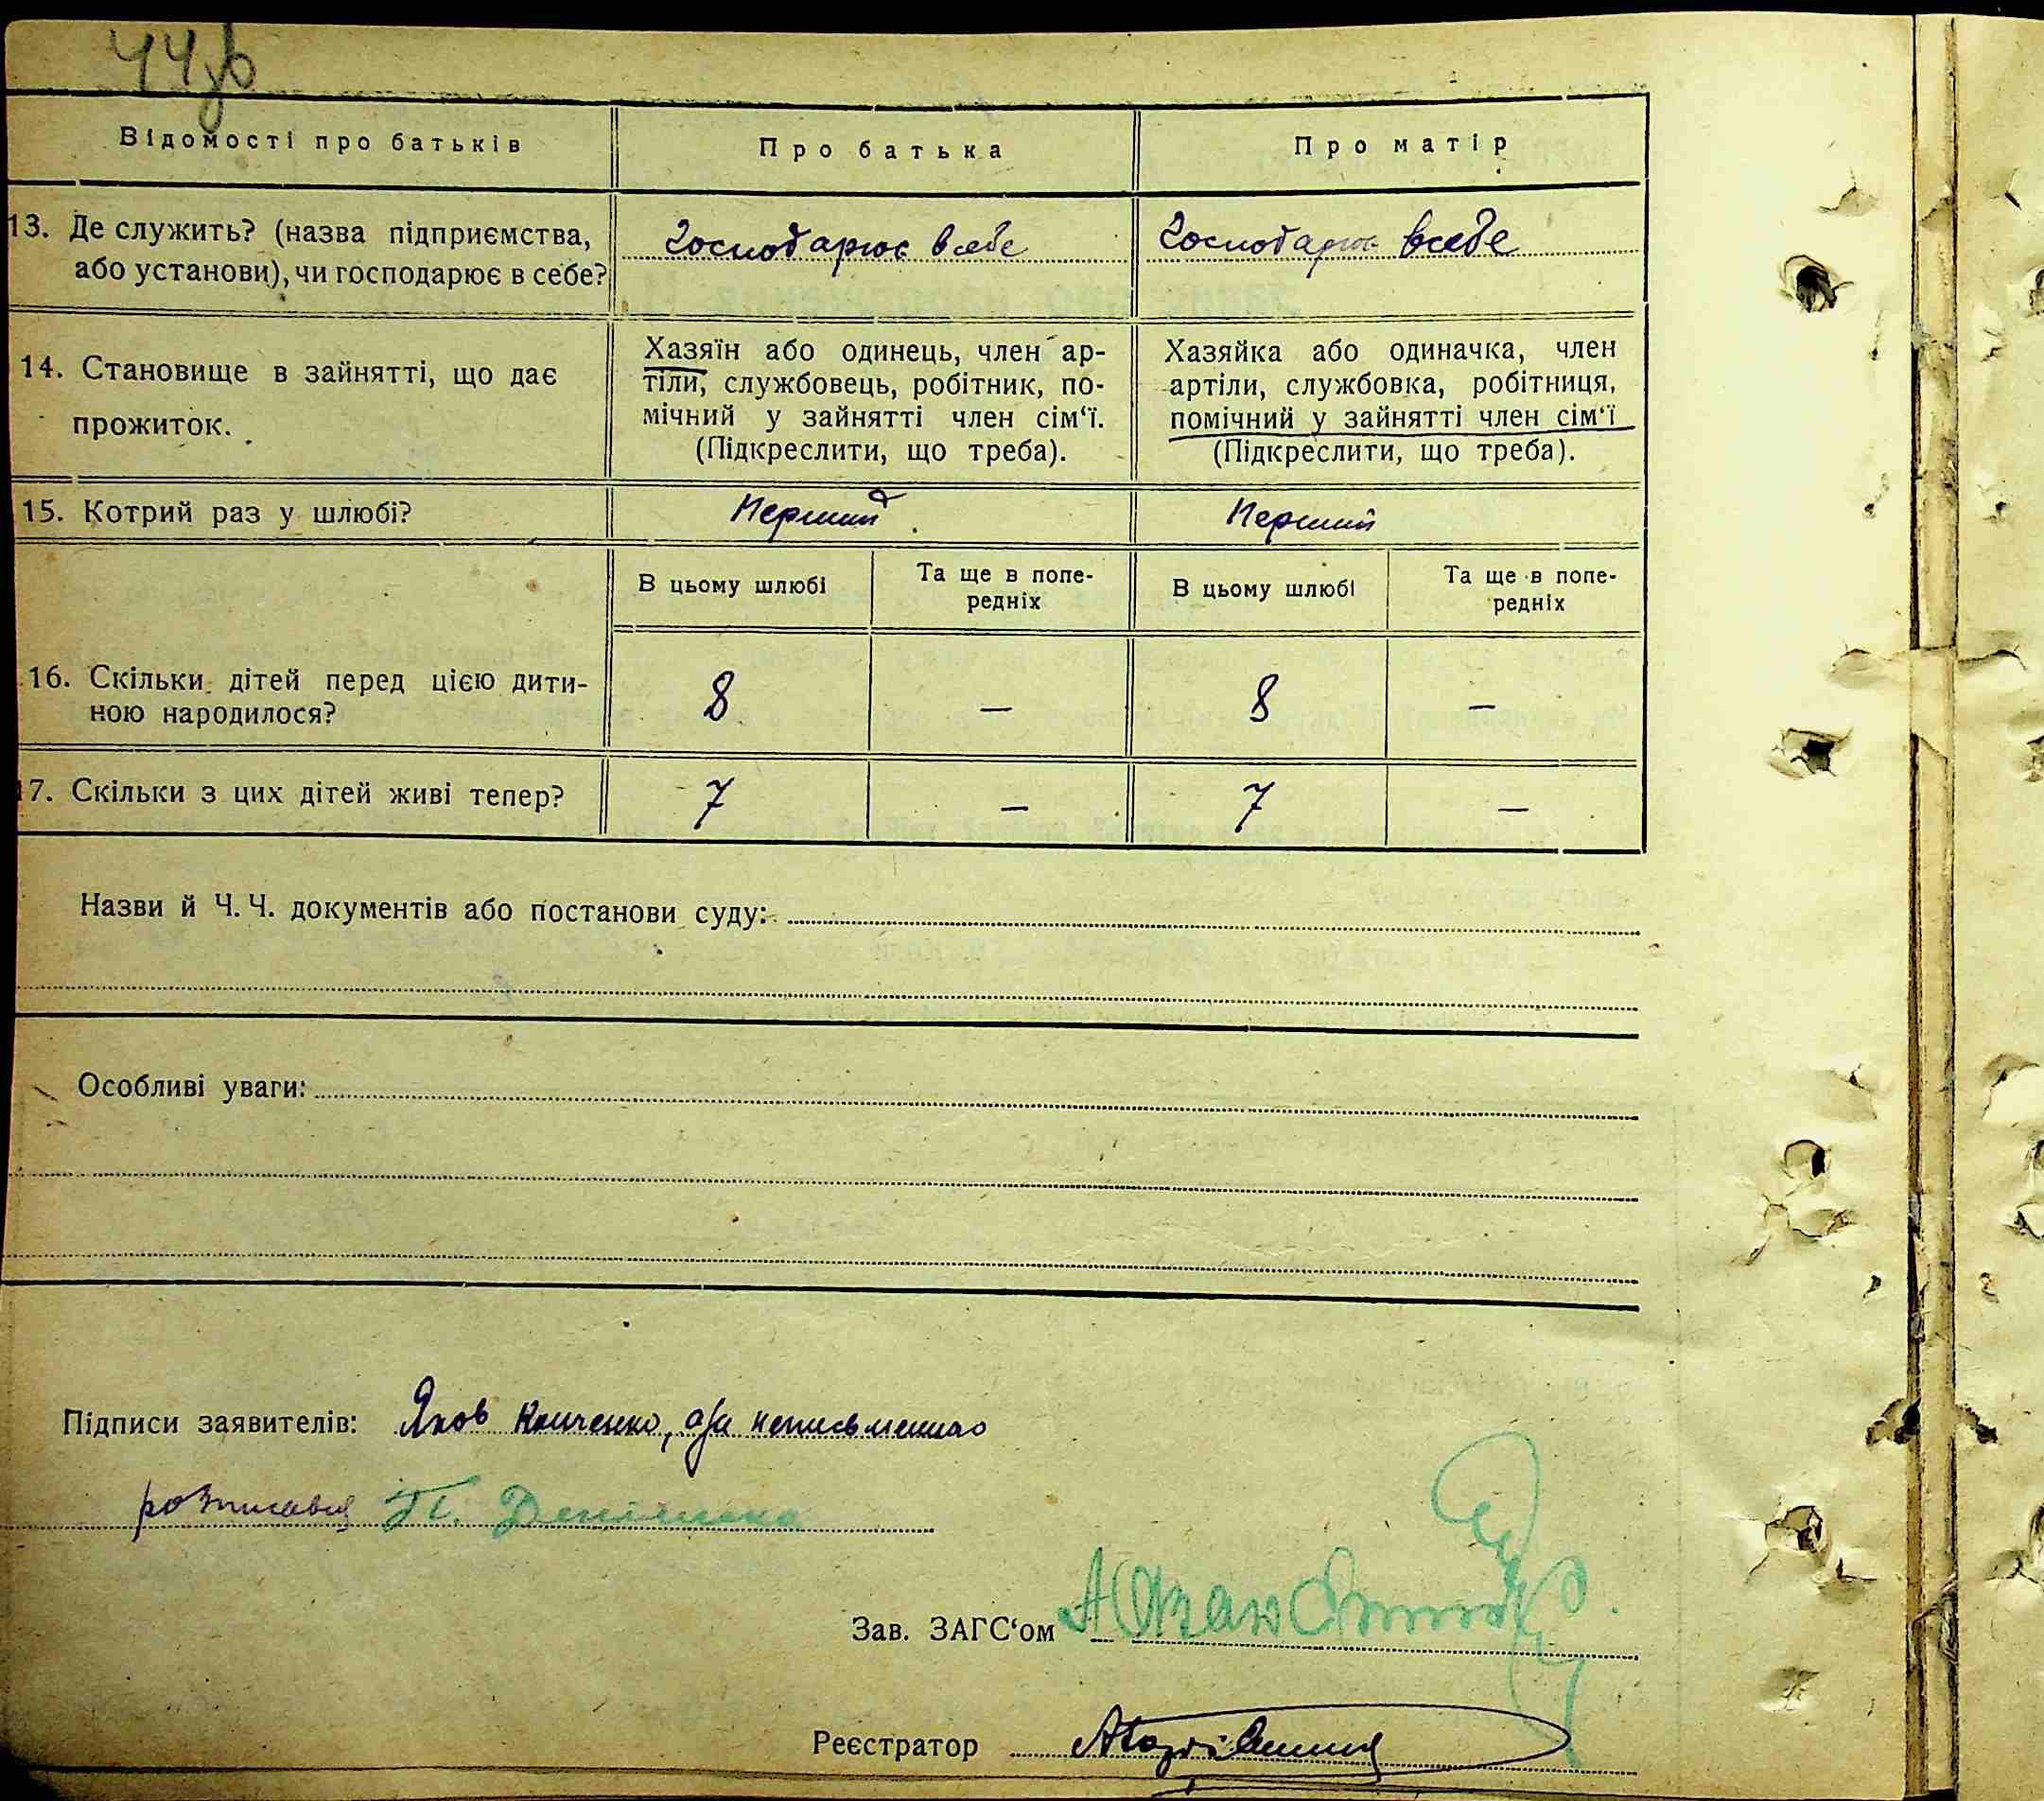 44
Відомості про батьків
Про батька
Про матір
13. Де служить? (назва підприємства,
або установи), чи господарює в себе?
Господарює в себе
Господарює в себе
14. Становище в зайнятті, що дає
прожиток.
Хазяїн або одинець, член ар-
тіли, службовець, робітник, по-
мічний у зайнятті член сім‘ї.
(Підкреслити, що треба).
Хазяйка або одиначка, член
артіли, службовка, робітниця,
помічний у зайнятті член сім‘ї
(Підкреслити, що треба).
15. Котрий раз у шлюбі?
Перший
Перший
В цьому шлюбі
Та ще в попе-
редніх
В цьому шлюбі
Та ще в попе-
редніх
16. Скільки дітей перед цією дити-
ною народилося?
8 — 8 —
17. Скільки з цих дітей живі тепер?
7 — 7 —
Назви й Ч. Ч. документів або постанови суду:
Особливі уваги:
Підписи заявителів: Яков неписьменного
розписався П.
Зав. ЗАГС‘ом
Реєстратор